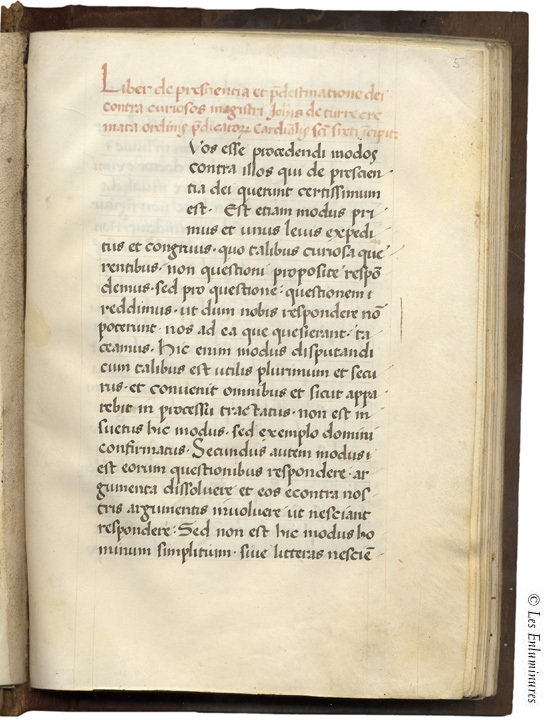 5
Liber de prescientia et p̄destinatione dei
contra curiosos magistri Joh̄is de turre cre
mata ordinis p̄dicatorꝝ Cardīalis sc̄ti sixti īcipit
Vos esse procedendi modos
contra illos qui de prescien
tia dei querunt certissimum
est. Est etiam modus pri
mus et unus levis expedi
tus et congruus. quo talibus curiosa que
rentibus. non questioni proposite respō
demus. sed pro questione. questionem i
reddimus. ut dum nobis respondere nō
poterunt. nos ad ea que quesierant. ta
ceamus. hic enim modus disputandi
cum talibus est utilis plurimum et secu
rus. et convenit omnibus et sicut appa
rebit in processu tractatus. non est in
suetus hic modus. sed exemplo domini
confirmatus. Secundus autem modus i
est eorum questionibus respondere. ar
gumenta dissolvere et eos econtra nos
tris argumentis involvere ut nesciant
respondere. Sed non est hic modus ho
minum simplitium. sive litteras nesciē
© Les Enluminures